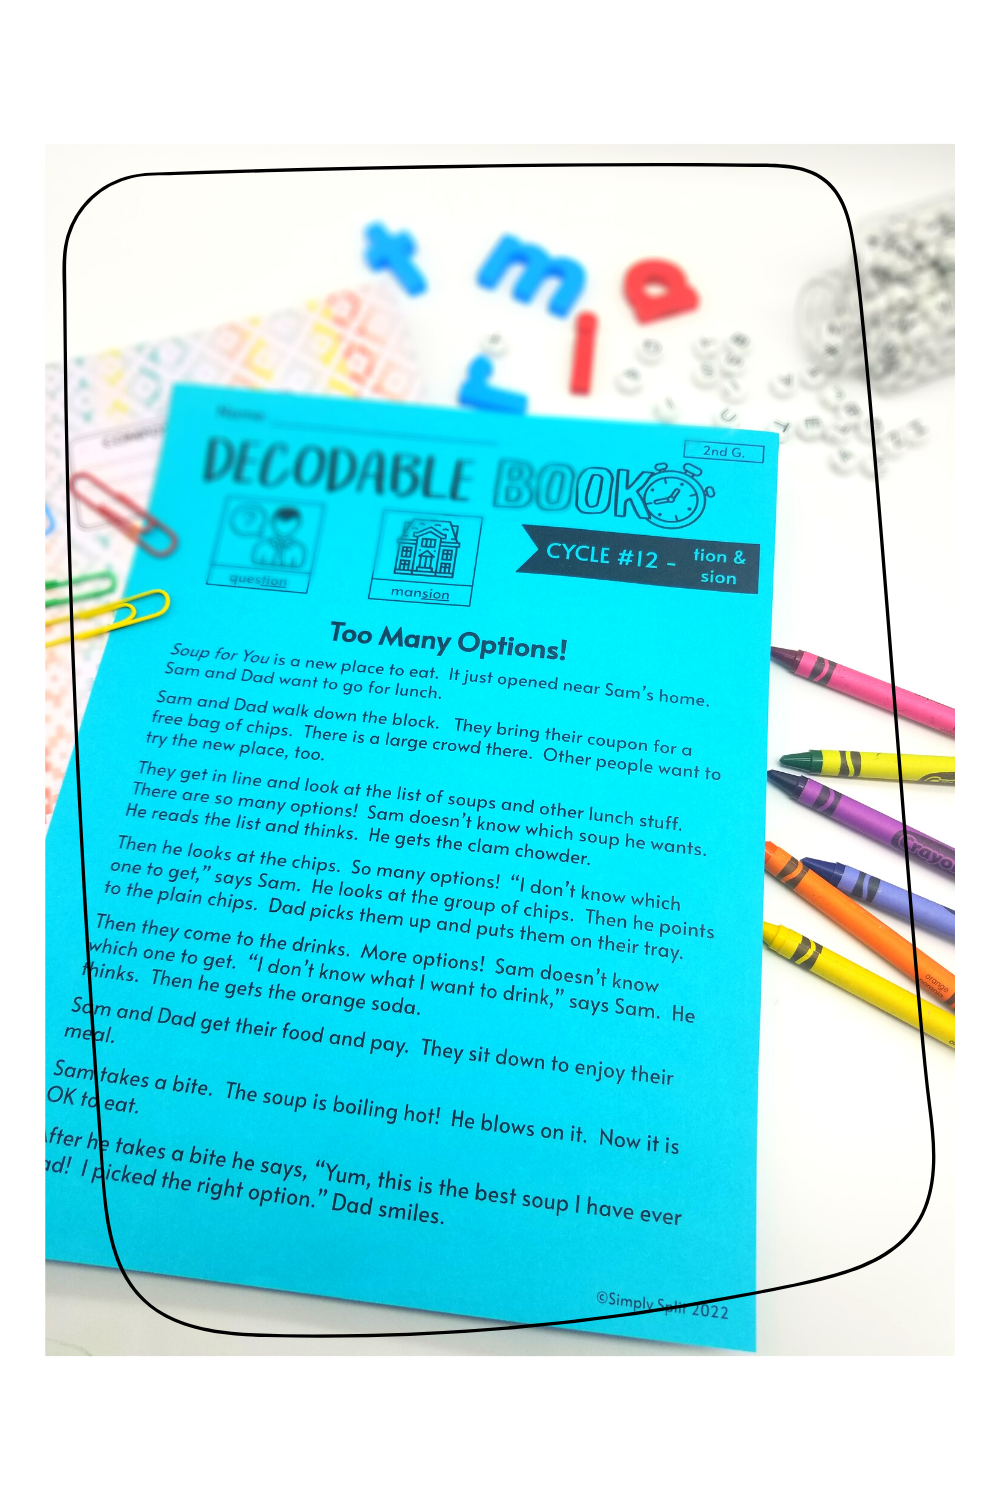 t m a
i
r
Name:
DECODABLE BOOK
2nd G.
question
mansion
CYCLE #12 - tion &
sion
Too Many Options!
Soup for You is a new place to eat. It just opened near Sam's home.
Sam and Dad want to go for lunch.
Sam and Dad walk down the block. They bring their coupon for a
free bag of chips. There is a large crowd there. Other people want to
try the new place, too.
They get in line and look at the list of soups and other lunch stuff.
There are so many options! Sam doesn't know which soup he wants.
He reads the list and thinks. He gets the clam chowder.
Then he looks at the chips. So many options! "I don't know which
one to get," says Sam. He looks at the group of chips. Then he points
to the plain chips. Dad picks them up and puts them on their tray.
Then they come to the drinks. More options! Sam doesn't know
which one to get. "I don't know what I want to drink," says Sam. He
thinks. Then he gets the orange soda.
Sam and Dad get their food and pay. They sit down to enjoy their
meal.
Sam takes a bite. The soup is boiling hot! He blows on it. Now it is
OK to eat.
After he takes a bite he says, "Yum, this is the best soup I have ever
I picked the right option." Dad smiles.
©Simply Split 2022
Crayo
orange